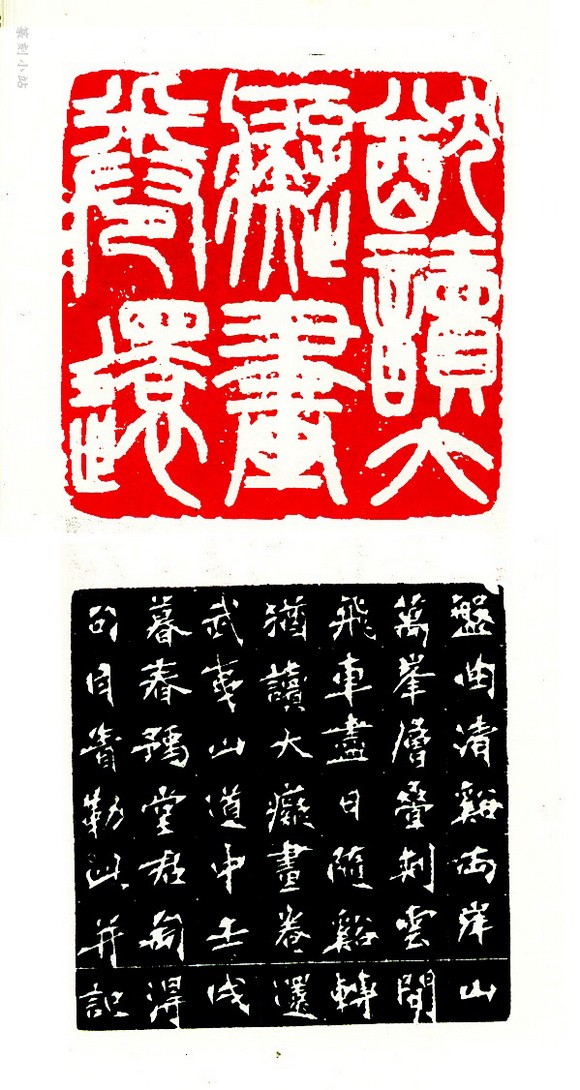 篆刻小站
猷讀大
癡畫
卷還
盤曲清谿兩岸山
萬峯層疊刺雲間
飛車盡日隨谿轉
猶讀大癡畫卷還
武夷山道中壬戌
暮春豫堂君匋得
句自書勒此并記